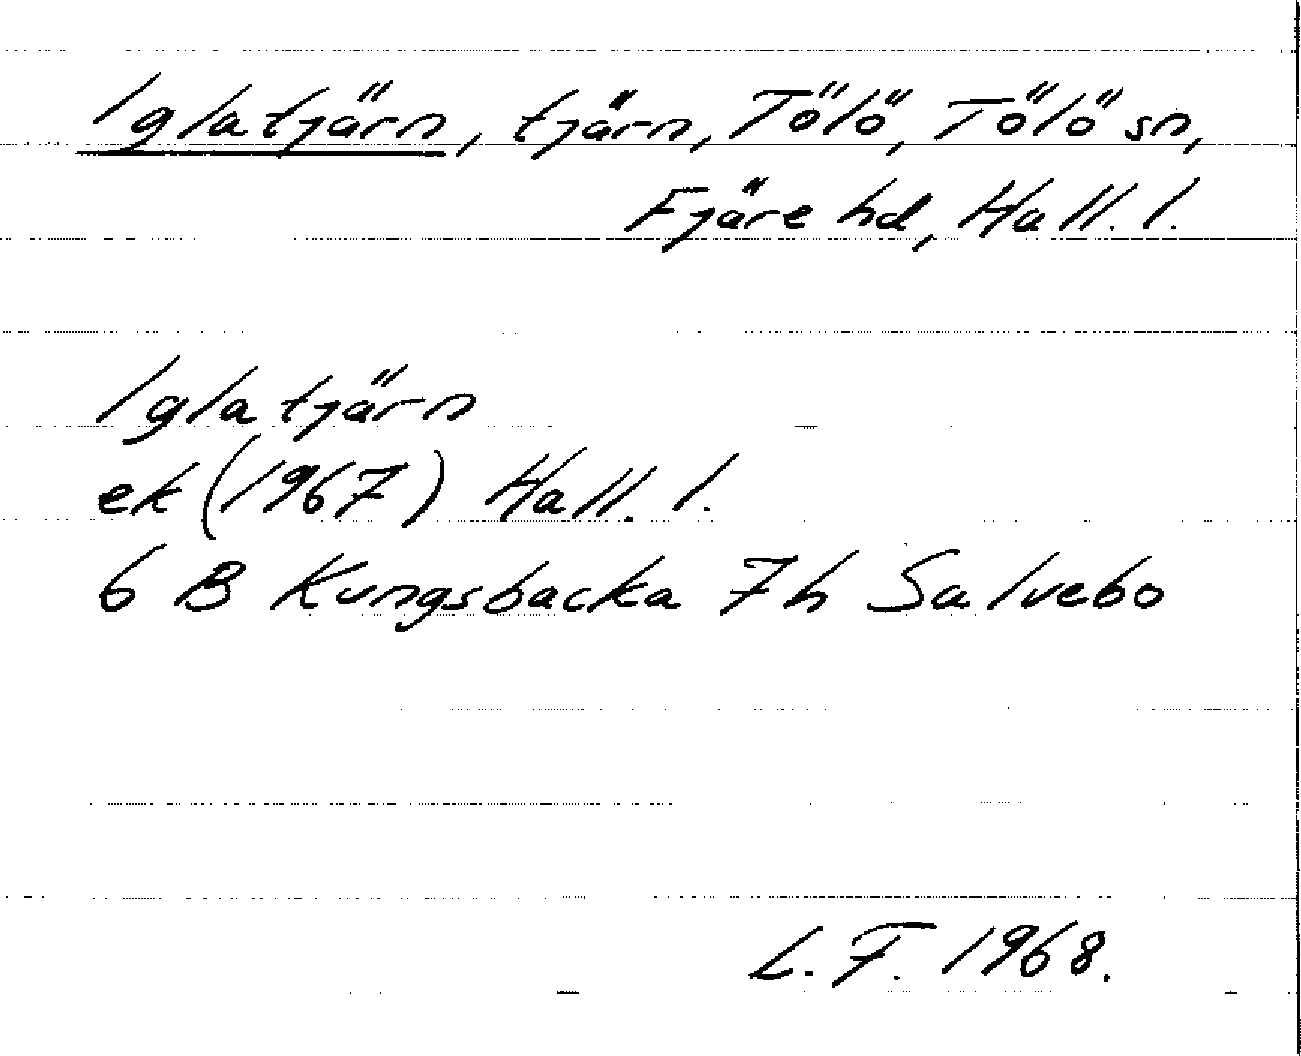 Iglatjärn, tjärn, Tölö, Tölö sn,
Fjäre hd, Hall. l.
Iglatjärn
ek (1967) Hall. l.
6 B Kungsbacka 7h Salvebo
L. F. 1968.